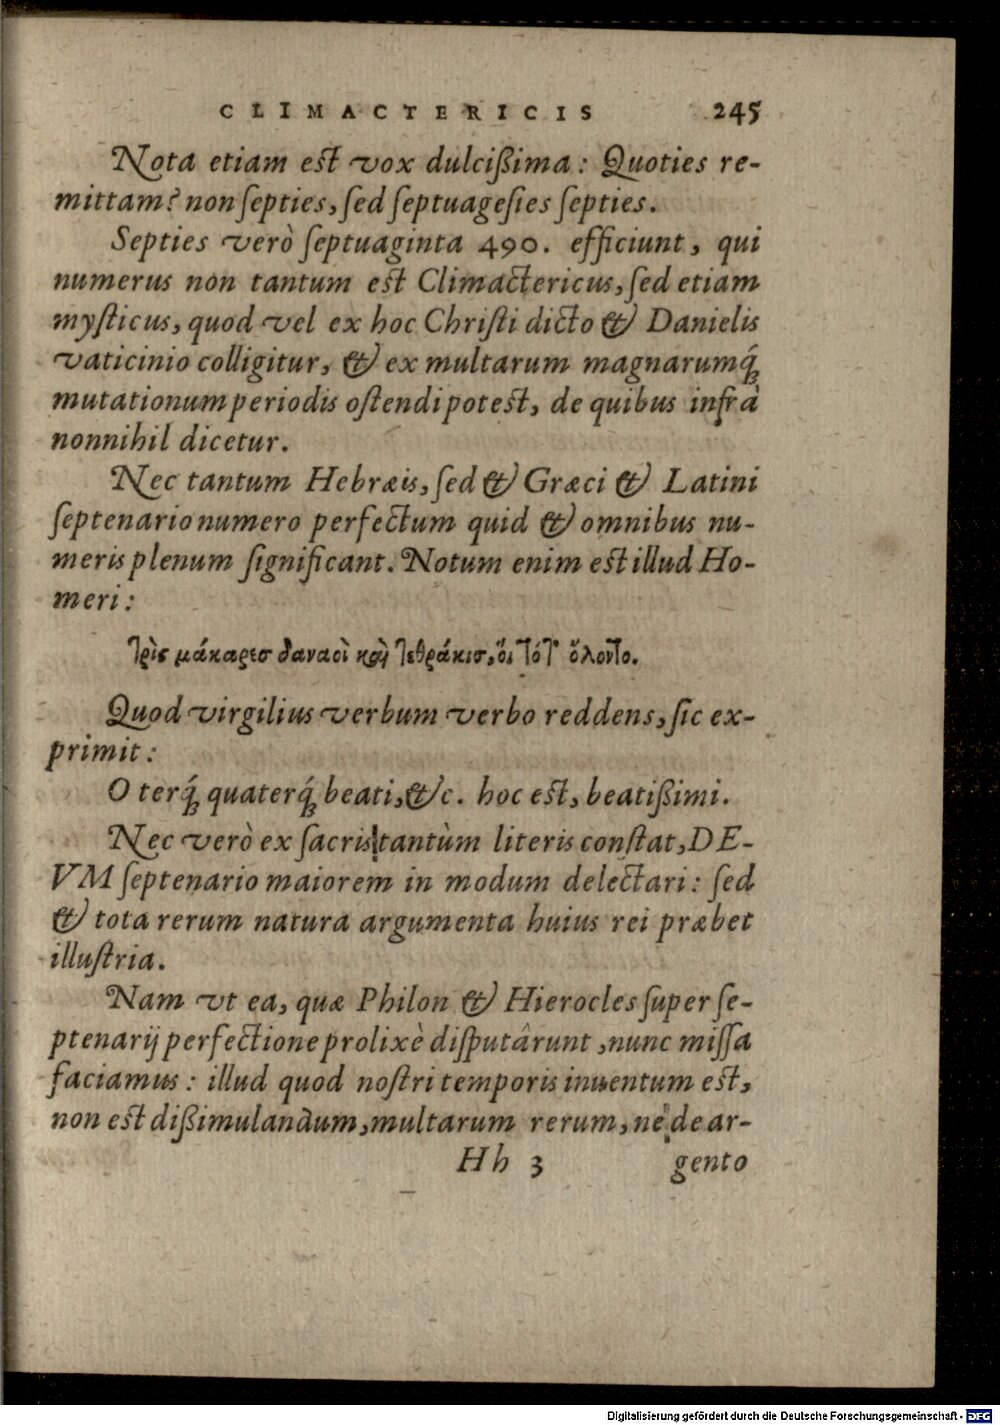 CLIMACTERICIS 245
Nota etiam est vox dulcißima: Quoties re-
mittam? non septies, sed septuagesies septies.
Septies verò septuaginta 490. efficiunt, qui
numerus non tantum est Climactericus, sed etiam
mysticus, quod vel ex hoc Christi dicto & Danielis
vaticinio colligitur, & ex multarum magnarumq́;
mutationum periodis ostendi potest, de quibus infrà
nonnihil dicetur.
Nec tantum Hebræis, sed & Græci & Latini
septenario numero perfectum quid & omnibus nu-
meris plenum significant. Notum enim est illud Ho-
meri:
τρὶς μάκαρες δαναοὶ καὶ τεθράκις, ὅι τότ' ὄλοντο.
Quod virgilius verbum verbo reddens, sic ex-
primit:
O terq́; quaterq́; beati, &c. hoc est, beatißimi.
Nec verò ex sacris tantùm literis constat, DE-
VM septenario maiorem in modum delectari: sed
& tota rerum natura argumenta huius rei præbet
illustria.
Nam vt ea, quæ Philon & Hierocles super se-
ptenarij perfectione prolixè disputârunt, nunc missa
faciamus: illud quod nostri temporis inuentum est,
non est dißimulandum, multarum rerum, ne de ar-
Hh 3 gento
Digitalisierung gefördert durch die Deutsche Forschungsgemeinschaft - DFG